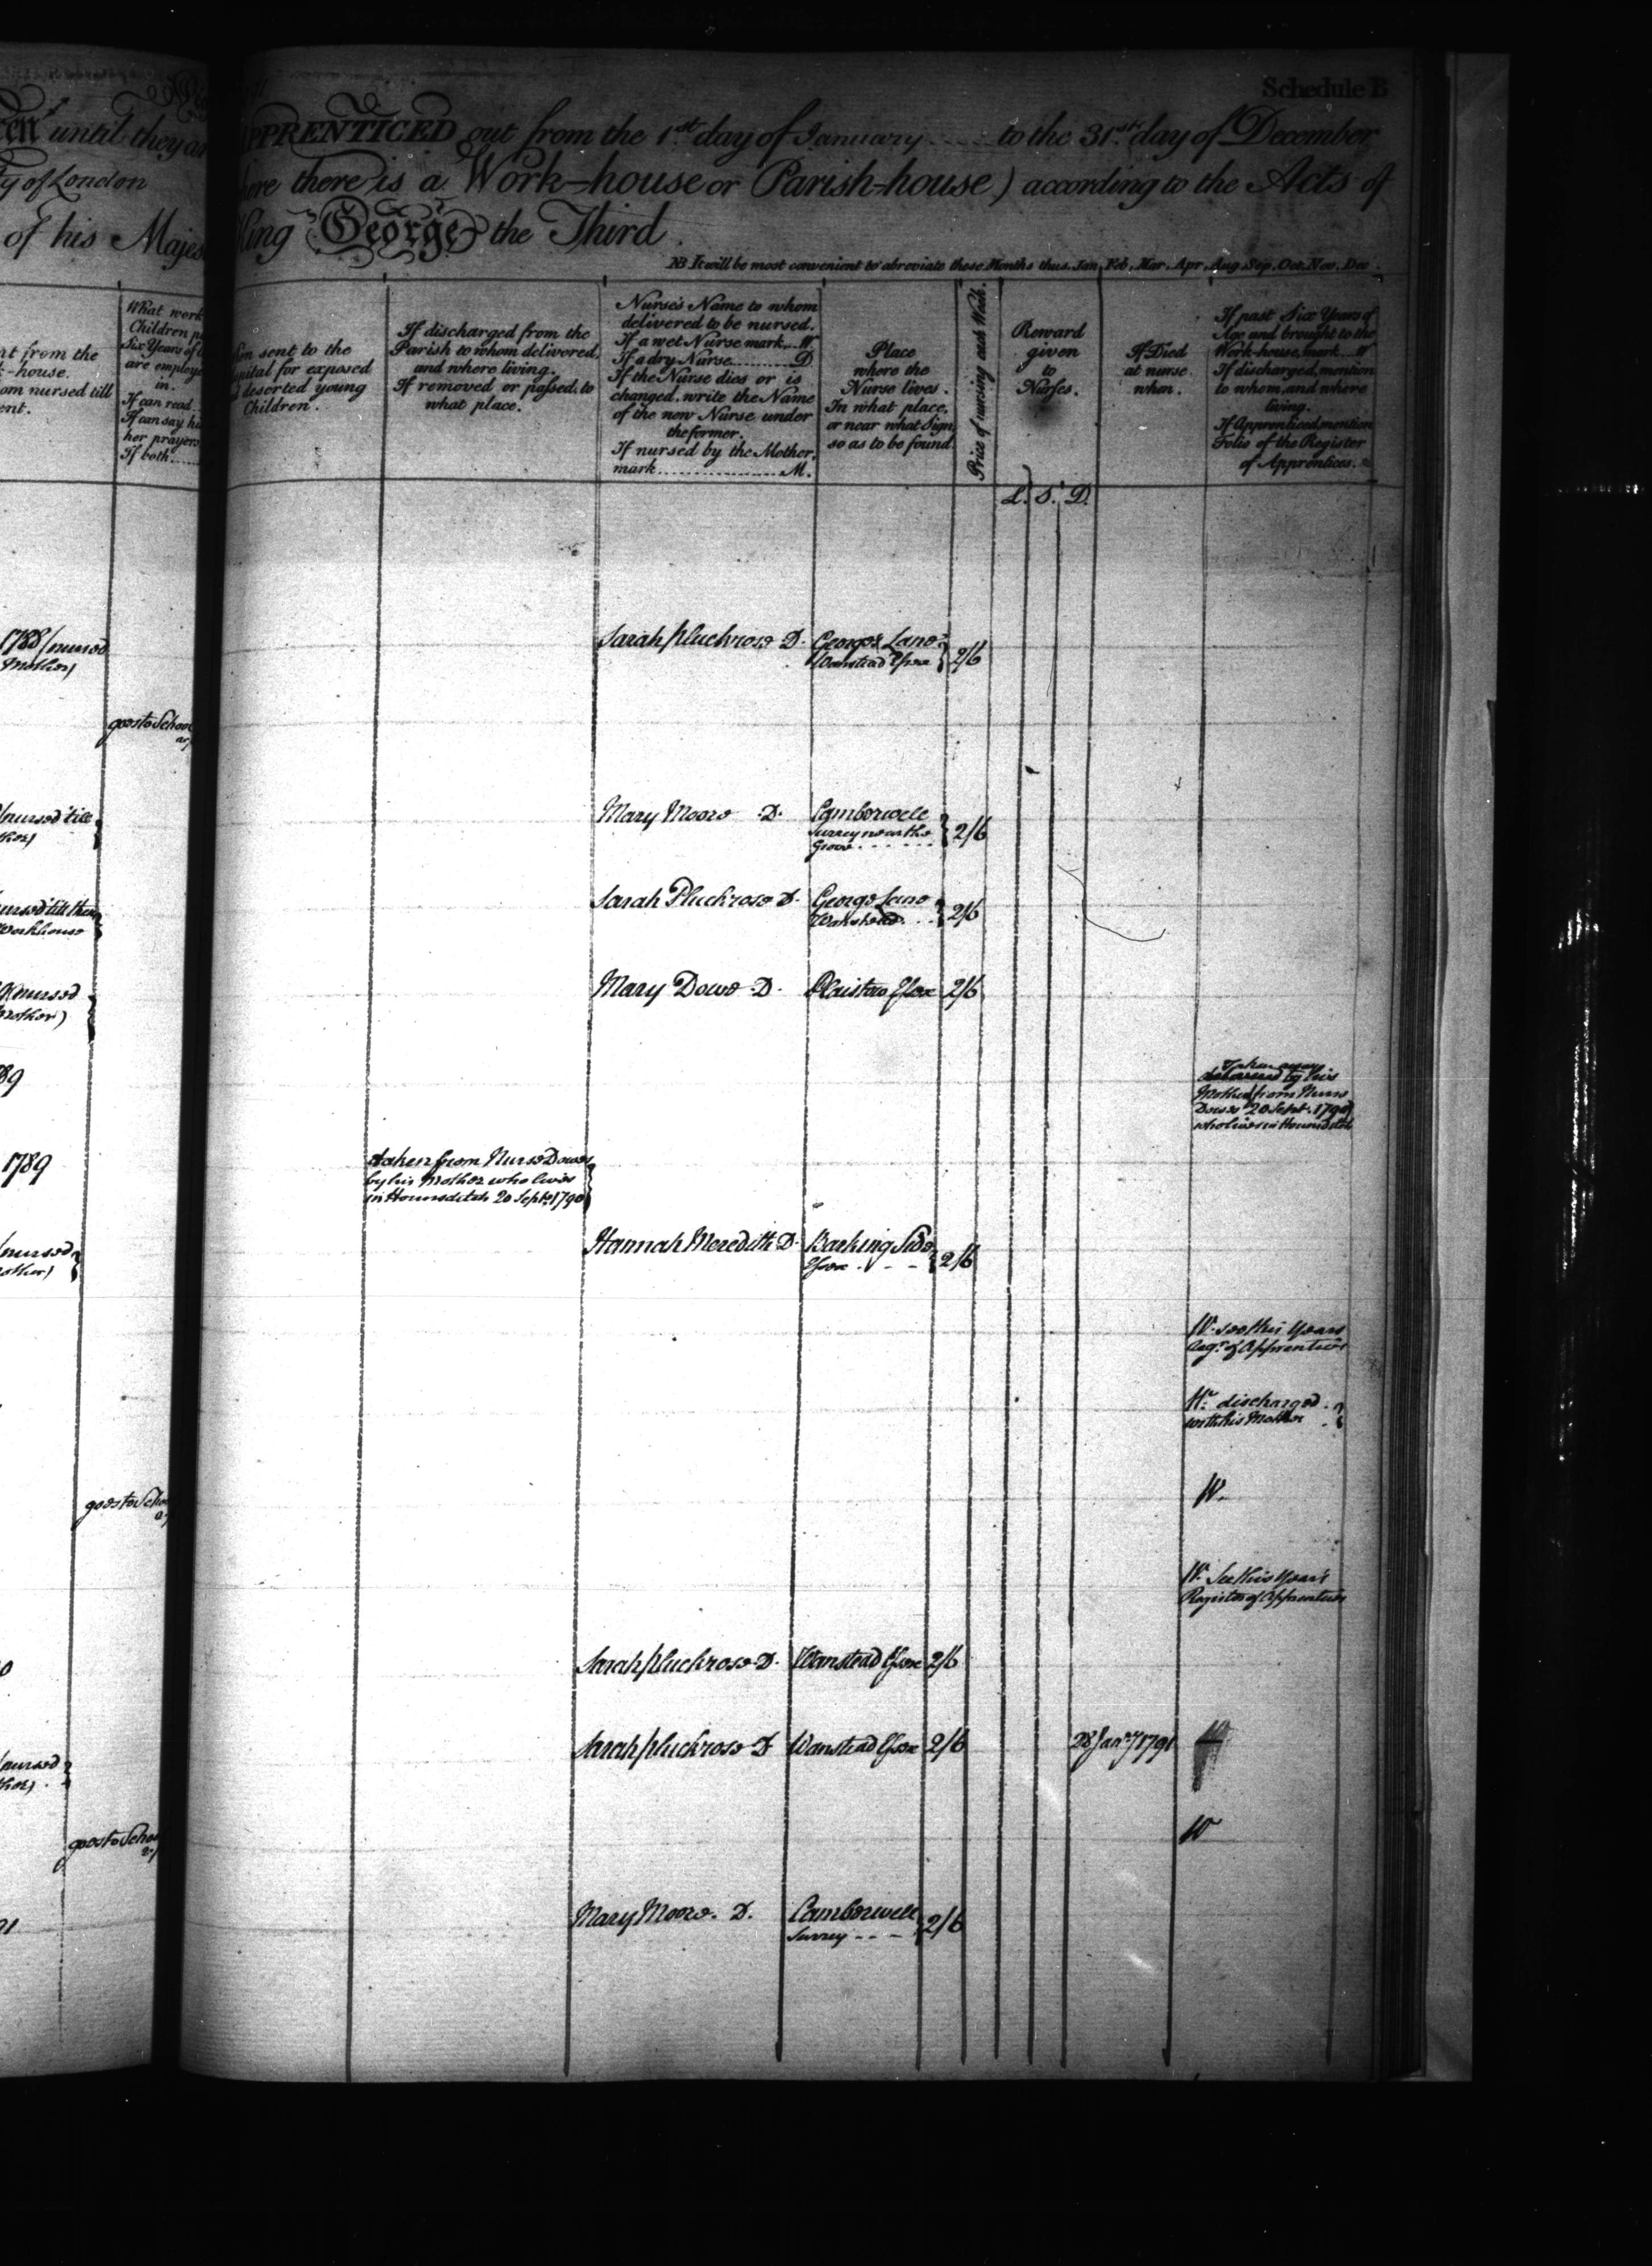 Schedule B
until they
APPRENTICED out from the 1st day of January to the 31st day of December
ty of London
there is a Work-house or Parish-house) according to the Acts of
of his Majes
King George the Third.
NB It will be most convenient to abreviate these Months thus. Jan, Feb, Mar, Apr, Aug, Sep, Oct, Nov, Dec
from the
-house.
nursed till
What work
Children
Six Years of
are employ
in.
If can read
If can say his
her prayers
If both
sent to the
for exposed
deserted young
Children.
If discharged from the
Parish to whom delivered,
and where living.
If removed or passed, to
what place.
Nurse's Name to whom
delivered to be nursed.
If a wet Nurse mark W
If a dry Nurse D
If the Nurse dies or is
changed, write the Name
of the new Nurse under
the former.
If nursed by the Mother,
mark M.
Place
where the
Nurse lives.
In what place,
or near what Sign,
so as to be found.
Price of nursing each Week.
Reward
given
to
Nurses.
L. S. D.
If Died
at nurse
when.
If past Six Years of
Age and brought to the
Work-house, mark W
If discharged, mention
to whom, and where
living.
If Apprenticed mention
Folio of the Register
of Apprentices.
1788 (nursed
Mother)
Sarah Pluckrose D. George Lane
Wanstead Essex 2/6
goes to School
nursed till
Mary Moore D. Camberwell
Surrey near the
Grove 2/6
nursed till then
Workhouse
Sarah Pluckrose D. George Lane
Wanstead 2/6
nursed
Mother)
Mary Dowe D. Plaistow Essex 2/6
89
Taken away
by his
Mother from Nurse
Dowe 20 Sept. 1790
who lives in Houndsditch
1789
taken from Nurse Dowe
by his Mother who lives
in Houndsditch 20 Sept. 1790
nursed
Hannah Meredith D. Barking Side
Essex 2/6
W. see this Years
Regr. of Apprentices
W. discharged
with his Mother
goes to School
W.
W. See this Year's
Register of Apprentices
Sarah Pluckrose D. Wanstead Essex 2/6
Sarah Pluckrose D Wanstead Essex 2/6 28 Jany 1791
nursed
goes to School
W
91
Mary Moore. D. Camberwell
Surrey 2/6